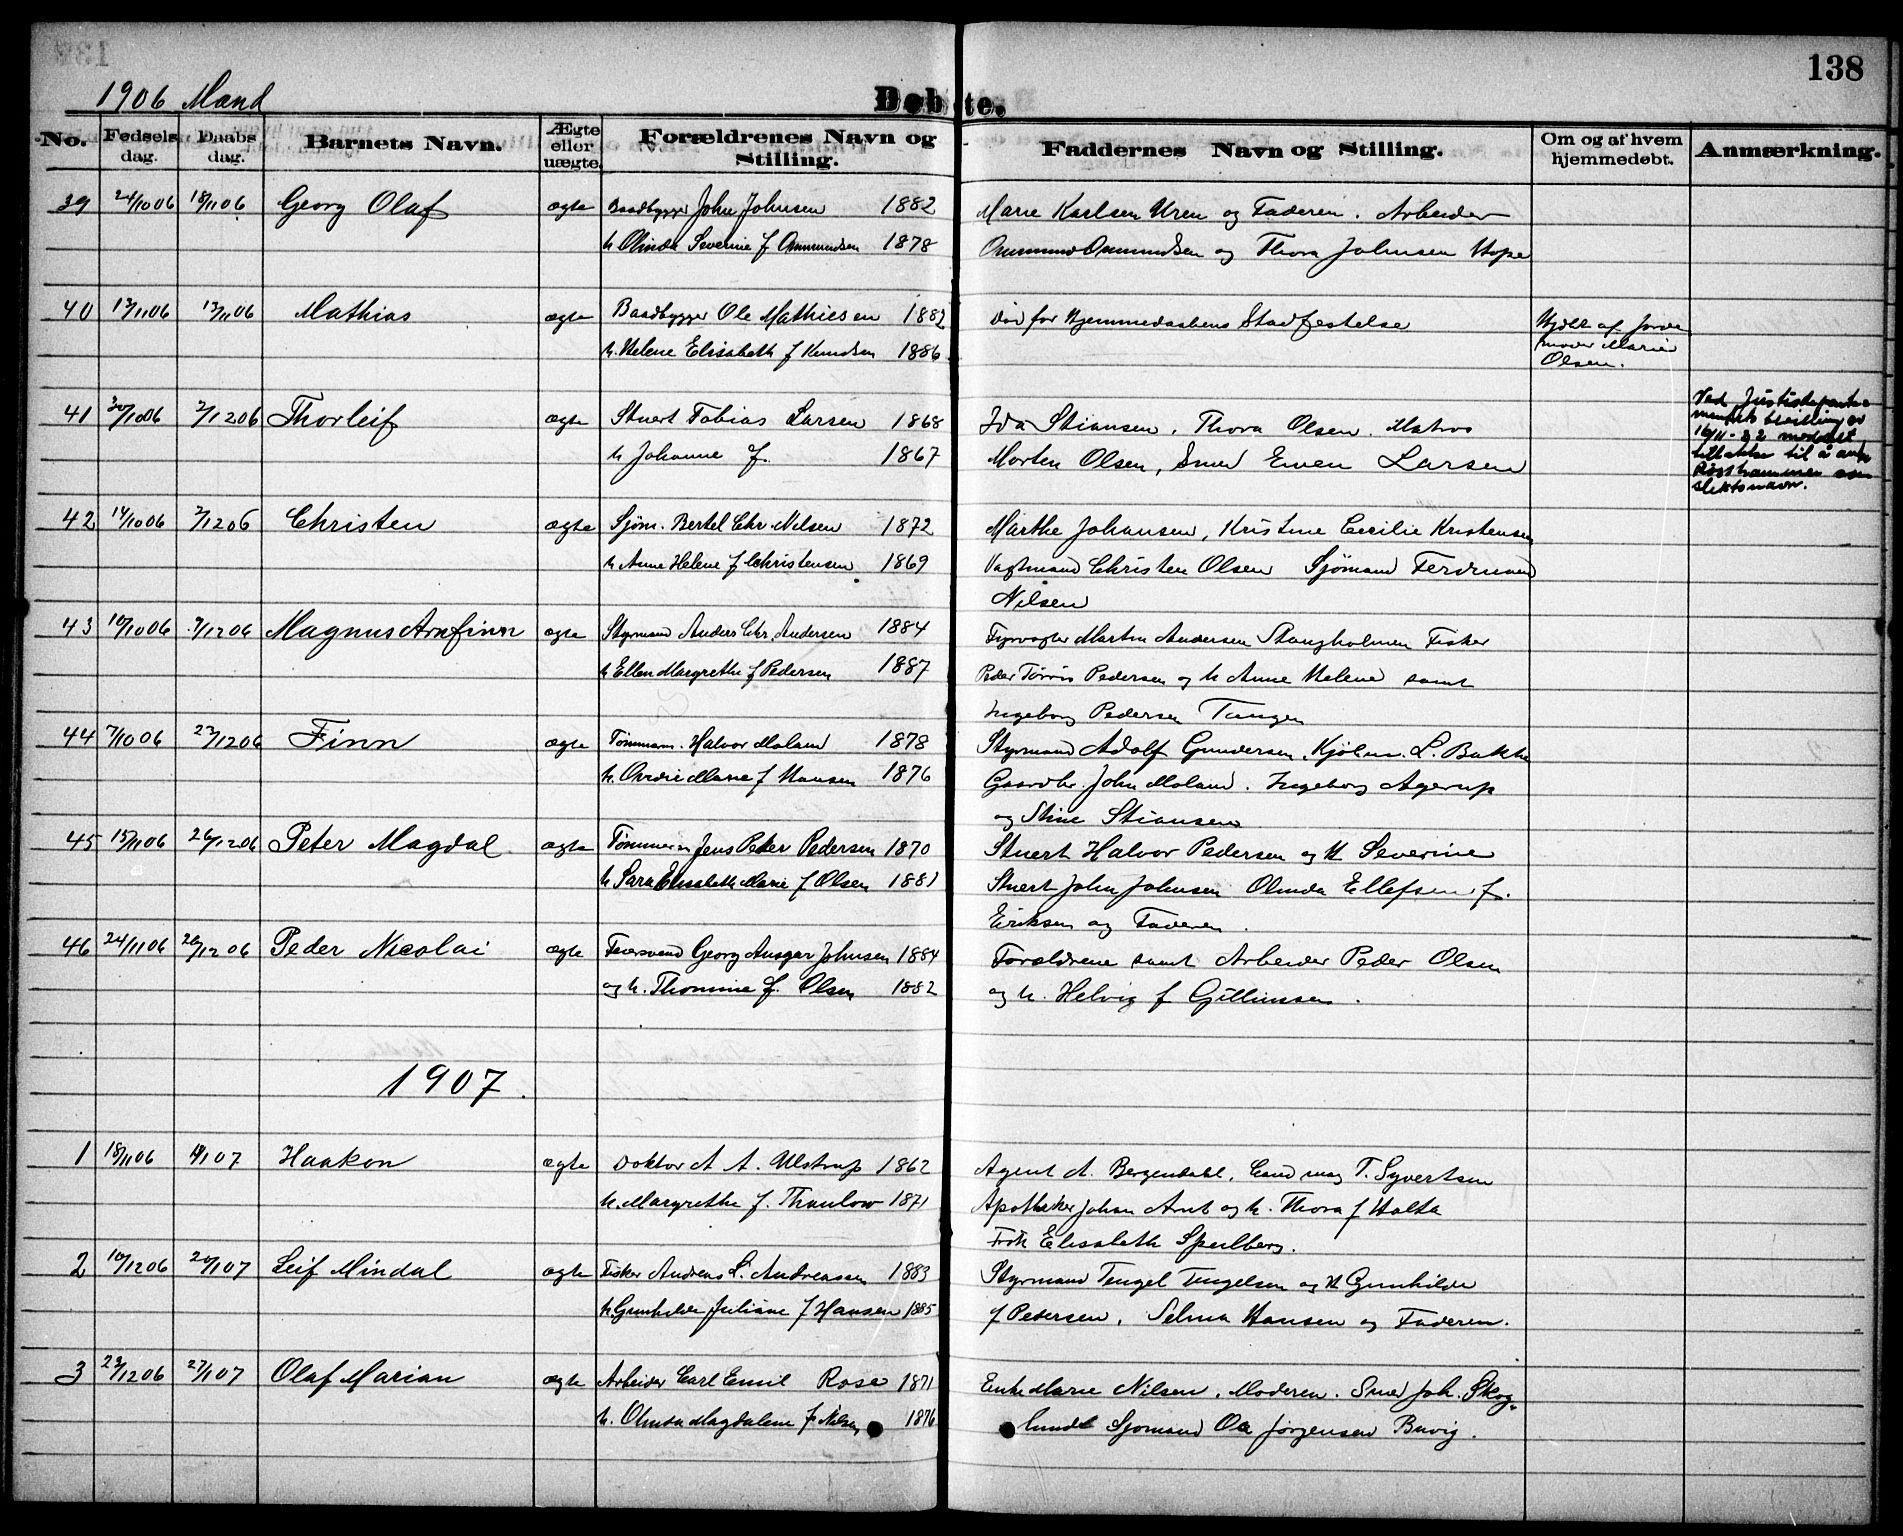 138
1906 Mand
Døbte.
No. Fødsels dag. Daabs dag. Barnets Navn. Ægte eller uægte. Forældrenes Navn og Stilling. Faddernes Navn og Stilling. Om og af hvem hjemmedøbt. Anmærkning.
39 24/10 06 18/11 06 Georg Olaf ægte Baadbygger John Johnsen 1882 Marie Karlsen Uren og Faderen. Arbeider
h. Olinda Severine f Ommundsen 1878 Ommund Ommundsen og Thora Johnsen Hope
40 13/11 06 13/11 06 Mathias ægte Baadbygger Ole Mathiesen 1882 død før Hjemmedaabens Stadfestelse Hjdbt af Jorde
h. Helene Elisabeth f Knudsen 1886 moder Marie
Olsen.
41 30/10 06 2/12 06 Thorleif ægte Stuert Tobias Larsen 1868 Ida Stiansen, Thora Olsen. Matros Ved Justisdeparte
h Johanne f. 1867 Morten Olsen, Smed Even Larsen mentets bevilling av
16/11-22 meddelt
tillatelse til å anta
som
slektsnavn.
42 14/10 06 2/12 06 Christen ægte Sjøm. Bertel Chr. Nilsen 1872 Marthe Johansen, Kristine Cecilie Kristensen
h Anne Helene f Christensen 1869 Vagtmand Christen Olsen Sjømand Ferdinand
Nilsen
43 10/10 06 9/12 06 Magnus Arnfinn ægte Styrmand Anders Chr. Andersen 1884 Fyrvogter Martin Andersen Stangholmen Fisker
h Ellen Margrethe f Pedersen 1887 Peder Tørris Pedersen og h Anne Helene samt
Ingeborg Pedersen Tangen
44 7/10 06 23/12 06 Finn ægte Tømmerm. Halvor Moland 1878 Styrmand Adolf Gundersen, Kjøbm. L. Bakke
h. Ovedie Marie f Hansen 1876 Gaardbr. John Moland. Ingeborg Agerup
og Stine Stiansen
45 15/11 06 26/12 06 Peter Magdal ægte Tømmerm Jens Peder Pedersen 1870 Stuert Halvor Pedersen og H Severine
h. Sara Elisabeth Marie f Olsen 1881 Stuert John Johnsen Olinda Ellefsen f.
Eriksen og Faderen.
46 24/11 06 26/12 06 Peder Nicolai ægte Georg Ansgar Johnsen 1884 Forældrene samt Arbeider Peder Olsen
og h. Thomine f. Olsen 1882 og h. Helvig f
1907.
1 18/11 06 1/1 07 Haakon ægte Doktor A A. Ulstrup 1862 Agent A. Bergendahl, Cand mag T. Syvertsen
h. Margrethe f. Thaulow 1871 Apotheker Johan Arnt og h. Thora f Holta
Frk Elisabeth Speilberg.
2 10/12 06 20/1 07 Leif Mindal ægte Fisker Andreas L. Andreassen 1883 Styrmand Tengel Tengelsen og H Gunhilde
h Gunhilde Juliane f Hansen 1885 f Pedersen, Selma Hansen og Faderen.
3 23/12 06 27/1 07 Olaf Marian ægte Arbeider Carl Emil Rose 1871 Enke Marie Nilsen, Moderen. Smed Joh. Skog-
h. Olinda Magdalene f. Nilsen 1876 lund Sjømand Ole Jørgensen Buvig.